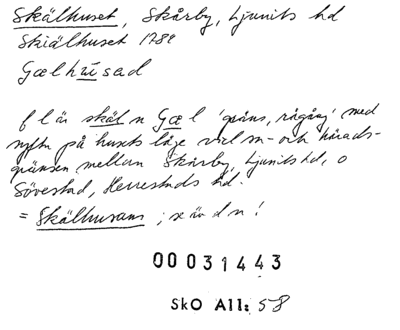 Skälhuset, Skårby, Ljunits hd
Skiälhuset 1789
Gælhusad
f l är skäl n Gæl 'gräns, rågång' med
syftn på husets läge vid sn- och härads-
gränsen mellan Skårby, Ljunits hd, o
Sövestad, Herrestads hd.
= Skälhusans ; se äv d n !
00031443
SkO All: 58